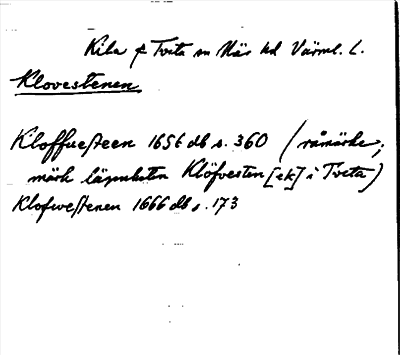 Kila f Tveta sn Näs hd Värml. L.
Klovestenen
Kloffuesteen 1656 db s. 360 (råmärke;
märk läsarten Klöfvesten [ek] i Tveta)
Klofwestenen 1666 db s. 173